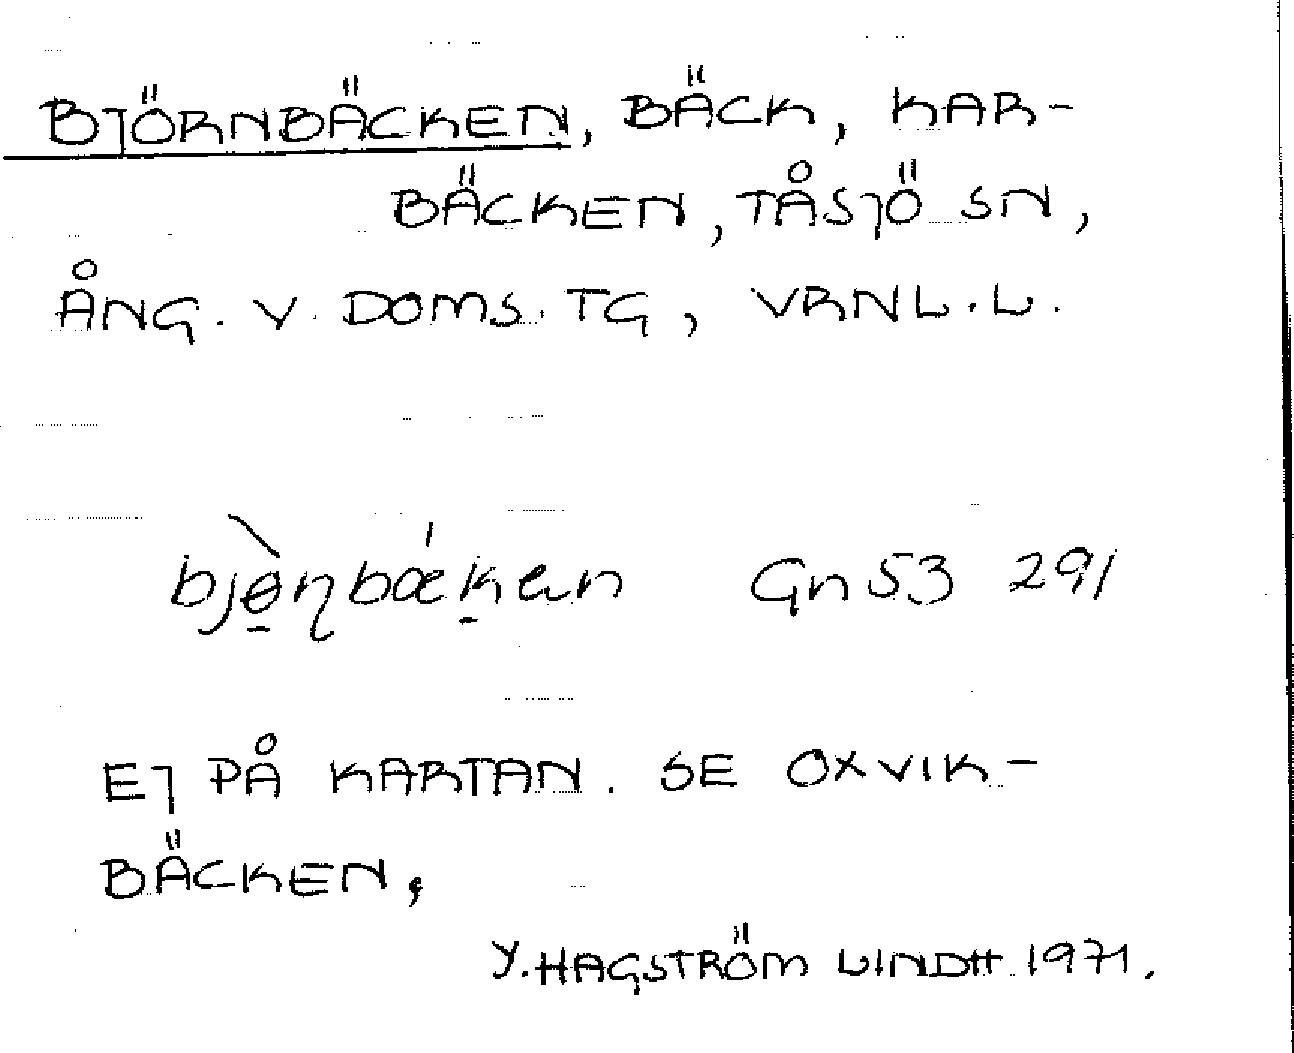 BJÖRNBÄCKEN, BÄCK, KAR-
BÄCKEN, TÅSJÖ SN,
ÅNG. V. DOMS. TG, VRNL. L.
bjɵ̠̀ɳbǽk̠en Gn 53 291
EJ PÅ KARTAN. SE OXVIK-
BÄCKEN,
Y. HAGSTRÖM LINDH 1971.